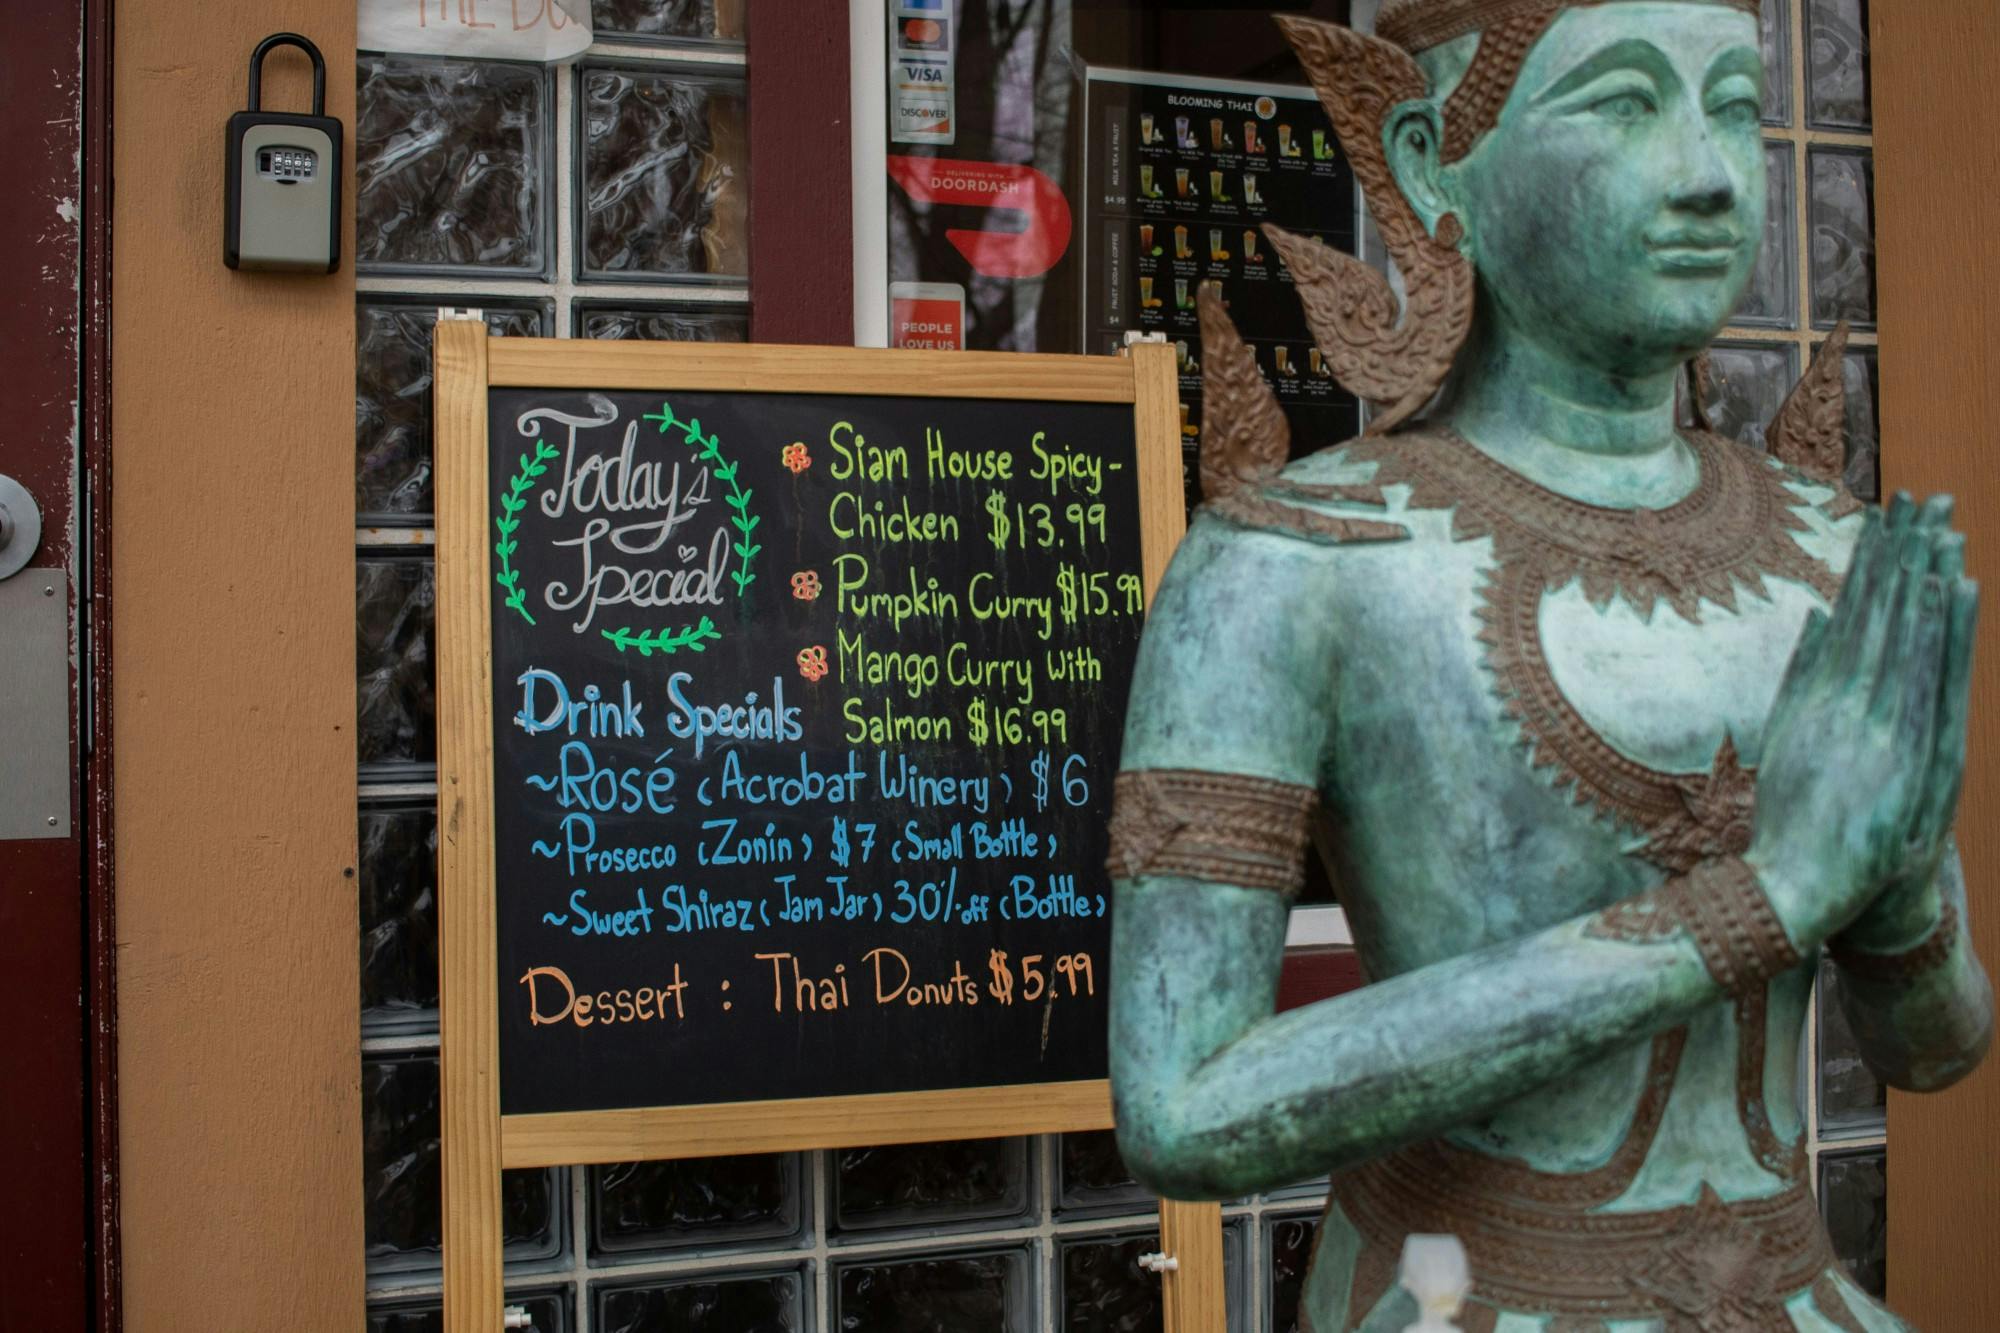 THE
VISA
DISCOVER
DELIVERING WITH
DOORDASH
PEOPLE
LOVE US
BLOOMING THAI
MILK TEA & FRUIT
$4.95
FRUIT SODA & COFFEE
$4
Today's
Special
Siam House Spicy-
Chicken $13.99
Pumpkin Curry $15.99
Mango Curry with
Salmon $16.99
Drink Specials
~Rosé (Acrobat Winery) $6
~Prosecco (Zonin) $7 (Small Bottle)
~Sweet Shiraz (Jam Jar) 30% off (Bottle)
Dessert : Thai Donuts $5.99